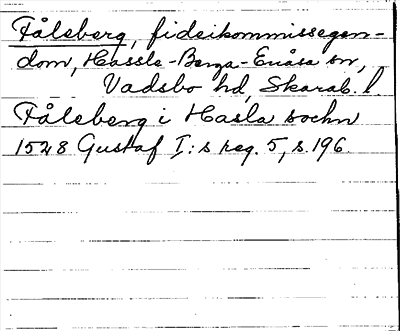 Fåleberg, fideikommissegen-
dom, Hassle-Berga-Enåsa sn,
Vadsbo hd, Skarab. l.
Fåleberg i Hasla sochn
1528 Gustaf I:s reg. 5, s. 196.